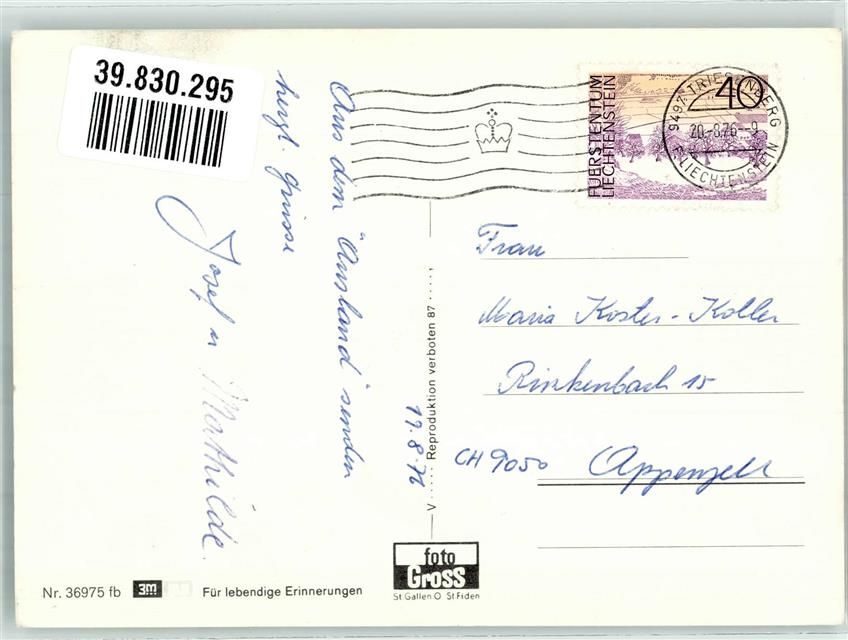 39.830.295
Aus dem "Ausland" senden
herzl. Grüsse
Josef u Mathilde.
17.8.76
FUERSTENTUM
LIECHTENSTEIN
40
9497 TRIESENBERG
20.-8.76--9
LIECHTENSTEIN
Frau
Maria Koster-Koller
Rinkenbach 15
CH 9050 Appenzell
V ..... Reproduktion verboten 87 .....,
foto
Gross
St.Gallen O St.Fiden
Nr. 36975 fb 3M Für lebendige Erinnerungen